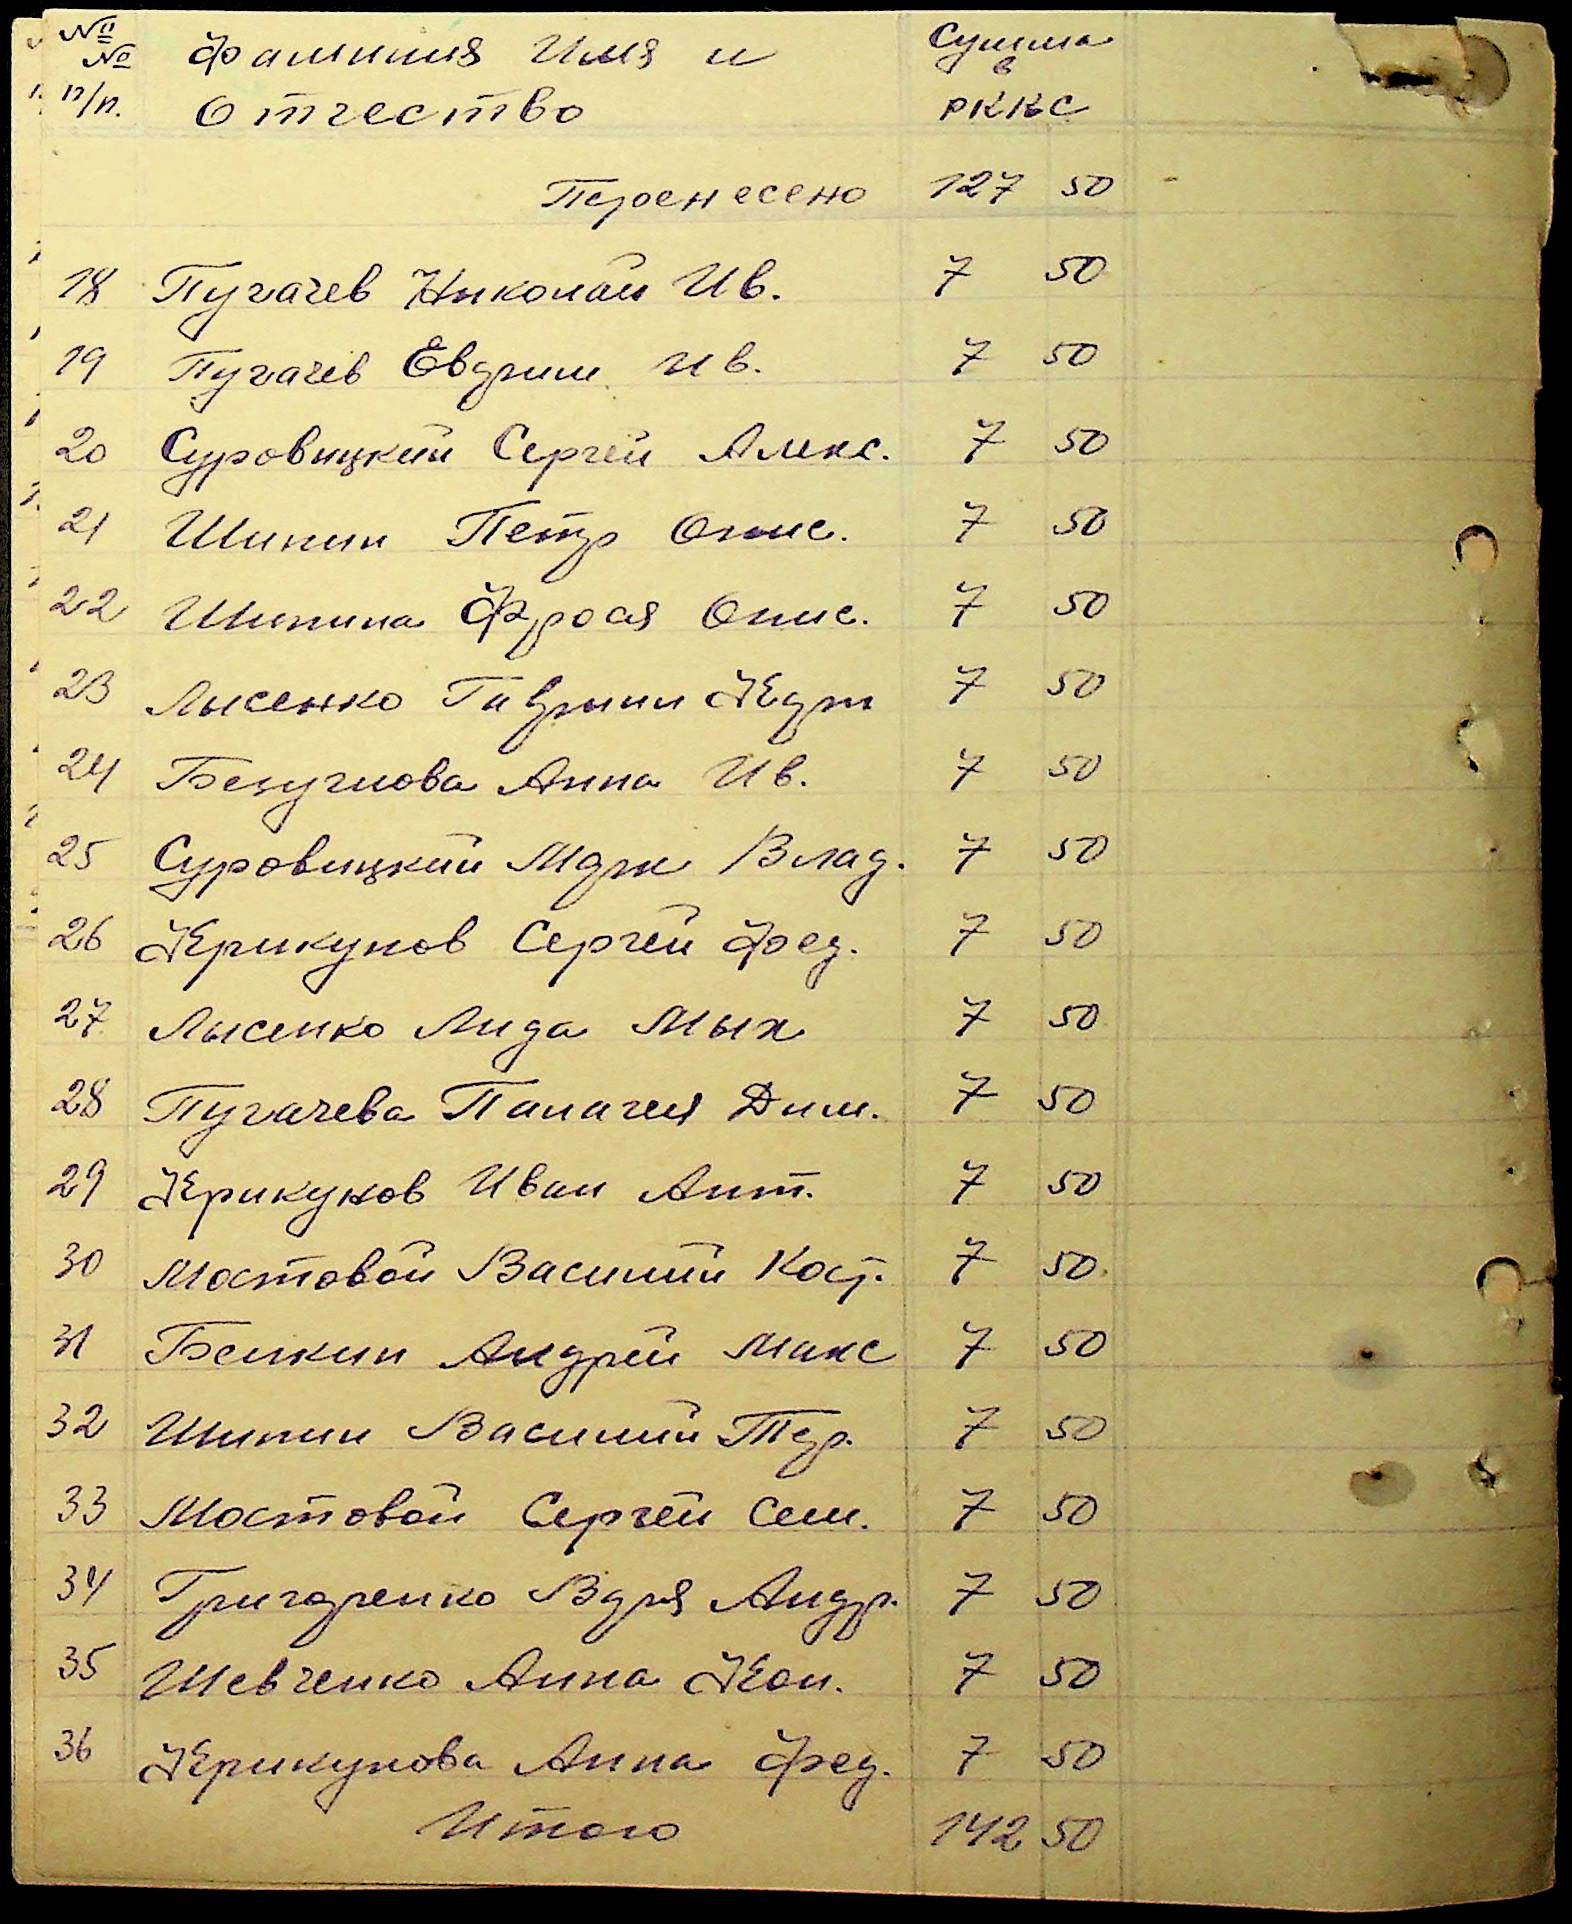 №№ Фамилия Имя и Сумма в
п/п. Отчество РККС
Перенесено 127 50
18 Пугачев Николай Ив. 7 50
19 Пугачев Ив. 7 50
20 Суровицкий Сергей Алекс. 7 50
21 Шипин Петр Онис. 7 50
22 Шипина Фрося Онис. 7 50
23 Лысенко Гаврили 7 50
24 Безуглова Анна Ив. 7 50
25 Суровицкий Влад. 7 50
26 Жерикунов Сергей Фед. 7 50
27 Лысенко Лида Мых 7 50
28 Пугачева Палагея Дим. 7 50
29 Жерикунов Иван Ант. 7 50
30 Мостовой Василий Кост. 7 50
31 Белкин Андрей Макс 7 50
32 Шипин Василий Тер. 7 50
33 Мостовой Сергей Сем. 7 50
34 Григоренко Андр. 7 50
35 Шевченко Анна 7 50
36 Жерикунова Анна Фед. 7 50
Итого 142 50